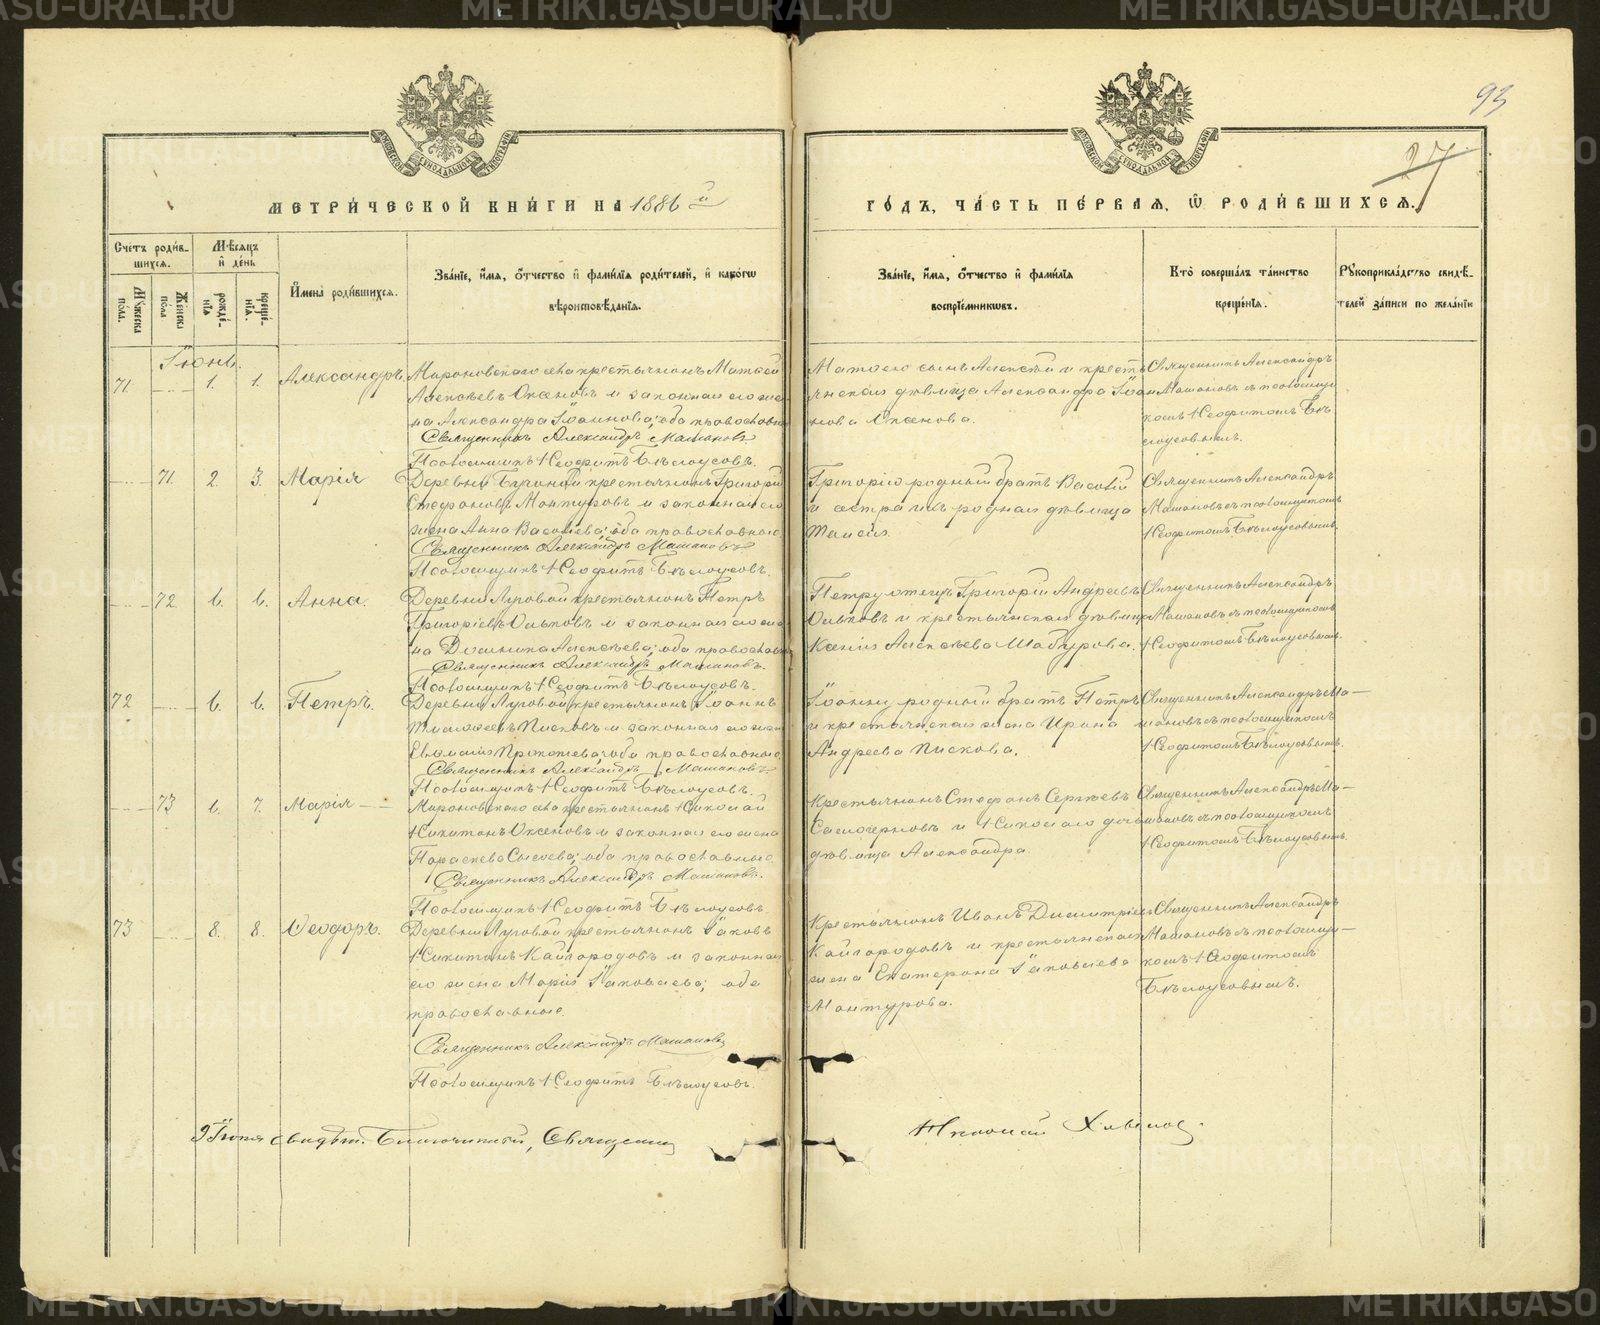 METRIKI.GASO-URAL.RU
93
27
МОСКОВСКОЙ СѴНОДАЛЬНОЙ ТИПОГРАФІИ
МЕТРИ́ЧЕСКОЙ КНИ́ГИ НА 1886 й
ГО́ДЪ, ЧА́СТЬ ПЕ́РВАЯ, Ѿ РОДИ́ВШИХСЯ.
Сче́тъ роди́в-
шихся.
Мꙋ́жеска по́ла.
Же́нска по́ла
Мѣ́сяцъ и де́нь
рожде́-
нія
креще́-
нія.
И҆мена̀ роди́вшихся.
Зва́ніе, и҆́мя, ѻ҆́тчество и҆ фами́лія роди́телей, и҆ како́гѡ
вѣроисповѣ́данія.
Зва́ніе, и҆́мя, ѻ҆́тчество и҆ фами́лія
воспріе́мникѡвъ.
Кто̀ соверша́лъ та́инство
креще́нія.
Рꙋкоприкла́дство свидѣ́-
телей за́писи по жела́нію
Іюнь.
71 1. 1. Александръ.
Мироновскаго села крестьянинъ Матѳей
Алексѣевъ Оксеновъ и законная его же-
на Александра Іоаннова; оба православн
Священникъ Александръ Машановъ
Псаломщикъ Неофитъ Бѣлоусовъ.
Матѳею сынъ Алексѣй и кресть
янская дѣвица Александра Іоан
нова Оксенова.
Священникъ Александръ
Машановъ съ псаломщи
комъ Неофитомъ Бѣ
лоусовымъ.
71 2. 3. Марія
Деревни крестьянинъ Григорій
Стефановъ Мантуровъ и законная его
жена Анна Васильева; оба православные
Священникъ Александръ Машановъ
Псаломщикъ Неофитъ Бѣлоусовъ.
Григорію родный братъ Василій
и сестра ихъ родная дѣвица
Таисія.
Священникъ Александръ
Машановъ съ псаломщикомъ
Неофитомъ Бѣлоусовымъ
72 6. 6. Анна.
Деревни Луговой крестьянинъ Петръ
Григорьевъ и законная его же
на Домника Алексѣева; оба православн
Священникъ Александръ Машановъ.
Псаломщикъ Неофитъ Бѣлоусовъ.
Петру отецъ Григорій Андреевъ
и крестьянская дѣвица
Ксенія Алексѣева Шабурова.
Священникъ Александръ
Машановъ съ псаломщикомъ
Неофитомъ Бѣлоусовымъ.
72 6. 6. Петръ.
Деревни Луговой крестьянинъ Іоаннъ
Тимофеевъ Писковъ и законная его жена
Евлампія Прокопьева; оба православные
Священникъ Александръ Машановъ
Псаломщикъ Неофитъ Бѣлоусовъ.
Іоанну родный братъ Петръ
и крестьянская жена Ирина
Андреева Пискова.
Священникъ Александръ Ма-
шановъ съ псаломщикомъ
Неофитомъ Бѣлоусовымъ.
73 6. 7. Марія
Мироновскаго села крестьянинъ Николай
Никитинъ Оксеновъ и законная его жена
Параскева Сысоева; оба православные
Священникъ Александръ Машановъ.
Псаломщикъ Неофитъ Бѣлоусовъ
Крестьянинъ Стефанъ Сергѣевъ
Самочерновъ и Николаю дочь
дѣвица Александра.
Священникъ Александръ Ма-
шановъ съ псаломщикомъ
Неофитомъ Бѣлоусовымъ.
73 8. 8. Ѳеодоръ.
Деревни Луговой крестьянинъ Іаковъ
Никитинъ Кайгородовъ и законная
его жена Марія Іаковлева; оба
православные.
Священникъ Александръ Машановъ
Псаломщикъ Неофитъ Бѣлоусовъ.
Крестьянинъ Иванъ Димитріевъ
Кайгородовъ и крестьянская
жена Екатерина Іаковлева
Мантурова.
Священникъ Александръ
Машановъ съ псаломщи-
комъ Неофитомъ
Бѣлоусовымъ.
9 Іюня свидѣт. Благочинный, Священникъ Николай